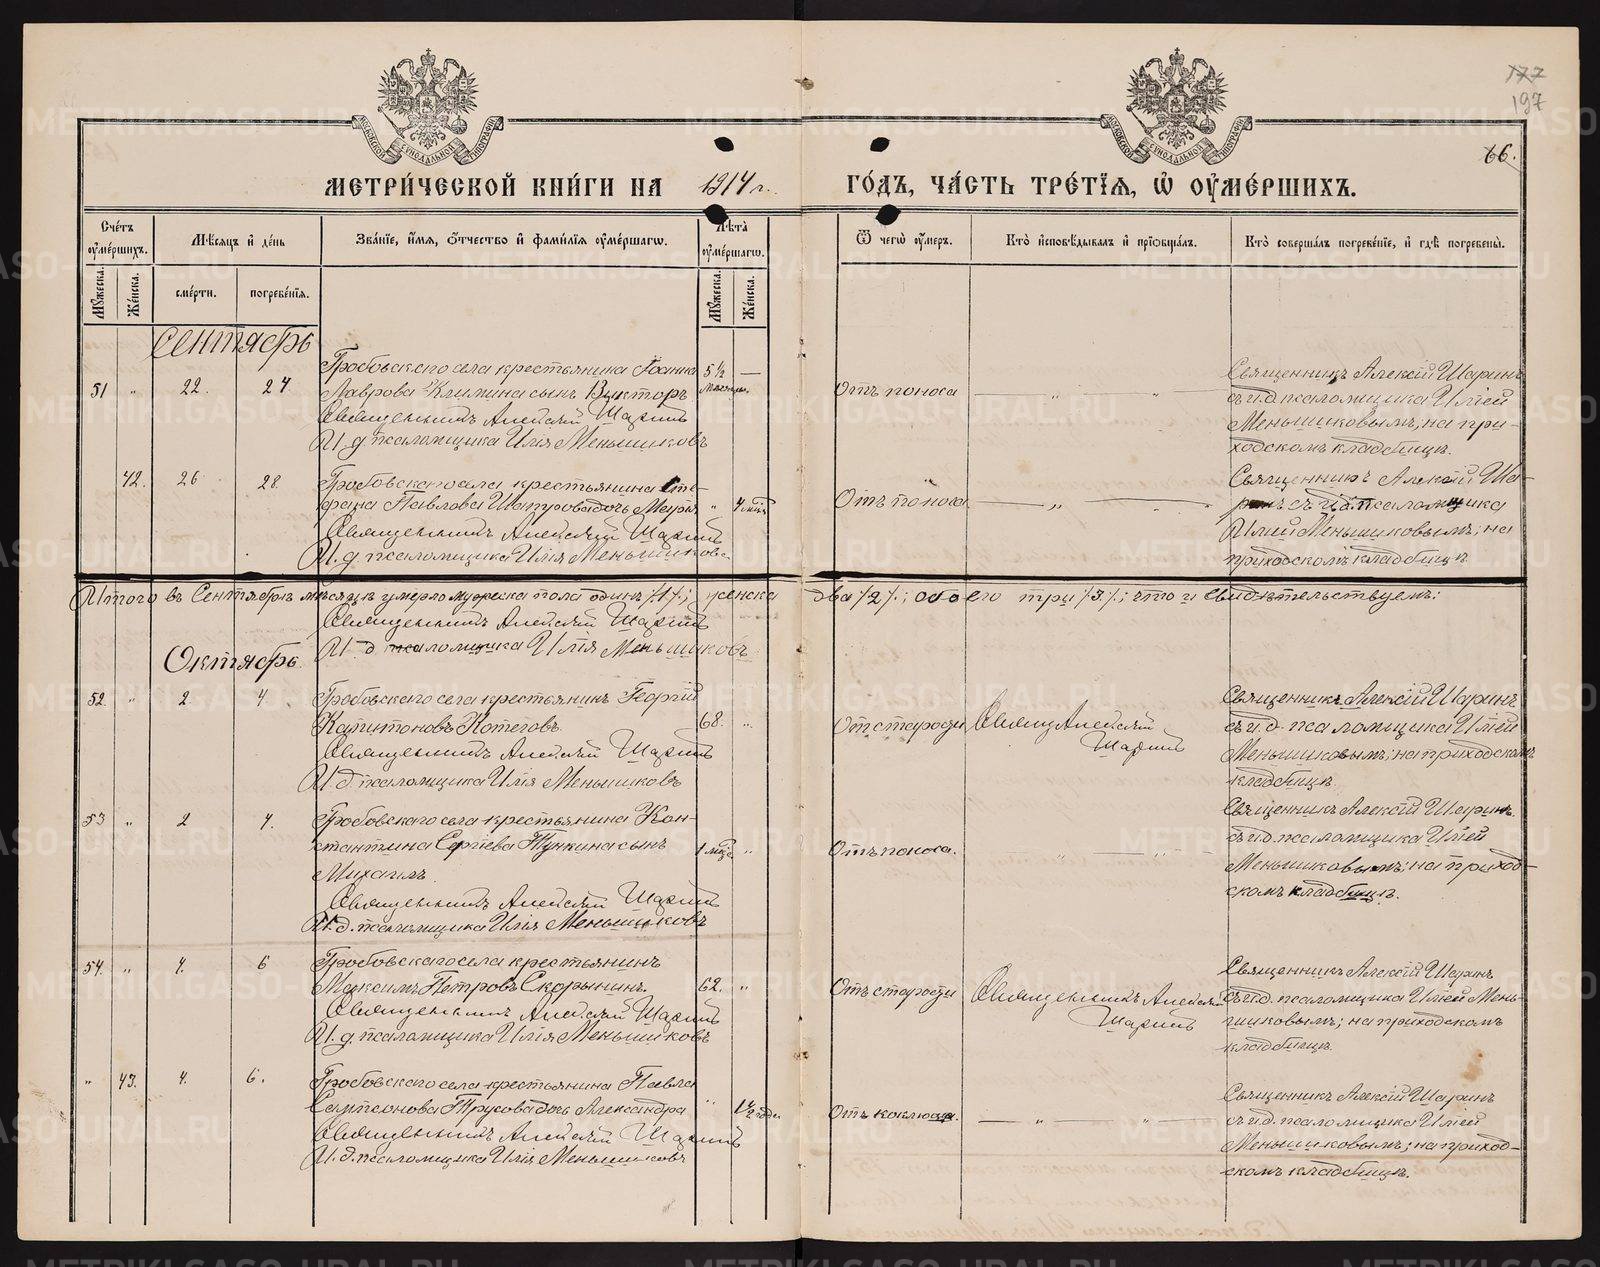 177
197
66.
МЕТРИ́ЧЕСКОЙ КНИ́ГИ НА 1914 г. ГО́ДЪ, ЧА́СТЬ ТРЕ́ТЇѦ, Ѡ҆ ОУ҆МЕ́РШИХЪ.
Сче́тъ оу҆ме́ршихъ.
Мѣ́сѧцъ и҆ де́нь
Зва́нїе, и҆́мѧ, ѻ҆́тчество и҆ фами́лїѧ оу҆ме́ршагѡ.
Лѣ́та оу҆ме́ршагѡ.
Ѿ чегѡ̀ оу҆́меръ.
Кто̀ и҆сповѣ́дывалъ и҆ прїѡбща́лъ.
Кто̀ соверша́лъ погребе́нїе, и҆ гдѣ̀ погребены̀.
Мꙋ́жеска.
Же́нска.
сме́рти.
погребе́нїѧ.
Мꙋ́жеска.
Же́нска.
Сентябрь
51 " 22. 24
Гробовскаго села крестьянина Іоанна
Лаврова Климина сынъ Викторъ
Священникъ Алексій Шаринъ
И. д. псаломщика Илія Меньшиковъ
5 ½ —
Отъ поноса
Священникъ Алексій Шаринъ
съ и. д. псаломщика Иліей
Меньшиковымъ; на при-
ходскомъ кладбищѣ.
42. 26 28.
Гробовскаго села крестьянина Сте-
фана Павлова дочь
Священникъ Алексій Шаринъ
И. д. псаломщика Илія Меньшиковъ
" 4 мѣс
Отъ поноса
Священникъ Алексій Ша-
ринъ съ и. д. псаломщика
Иліей Меньшиковымъ; на
приходскомъ кладбищѣ
Итого въ Сентябрѣ мѣсяцѣ умерло мужска пола одинъ /1/; женска два /2/; обоего три /3/; что и свидѣтельствуемъ:
Священникъ Алексій Шаринъ
И. д. псаломщика Илія Меньшиковъ
Октябрь.
52. " 2 4.
Гробовскаго села крестьянинъ Георгій
Капитоновъ Котеговъ.
Священникъ Алексій Шаринъ
И. д. псаломщика Илія Меньшиковъ
68. "
Отъ старости
Священ Алексій
Шаринъ
Священникъ Алексій Шаринъ
съ и. д. псаломщика Иліей
Меньшиковымъ; на приходскомъ
кладбищѣ.
53 " 2 4.
Гробовскаго села крестьянина Кон-
стантина Сергіева Тункина сынъ
Михаилъ
Священникъ Алексій Шаринъ
И. д. псаломщика Илія Меньшиковъ
1 мѣс. "
Отъ поноса.
Священникъ Алексій Шаринъ
съ и. д. псаломщика Иліей
Меньшиковымъ; на приход-
скомъ кладбищѣ.
54. " 4. 6
Гробовскаго села крестьянинъ
Максимъ Петровъ Скорынинъ.
Священникъ Алексій Шаринъ
И. д. псаломщика Илія Меньшиковъ
62. "
Отъ старости
Священникъ Алексій
Шаринъ
Священникъ Алексій Шаринъ
съ и. д. псаломщика Иліей Мень-
шиковымъ; на приходскомъ
кладбищѣ.
" 43. 4. 6.
Гробовскаго села крестьянина Павла
Сампсонова Трусова дочь Александра
Священникъ Алексій Шаринъ
И. д. псаломщика Илія Меньшиковъ
" 1 ½ года.
Отъ коклюша.
Священникъ Алексій Шаринъ
съ и. д. псаломщика Иліей
Меньшиковымъ; на приход-
скомъ кладбищѣ.
METRIKI.GASO-URAL.RU